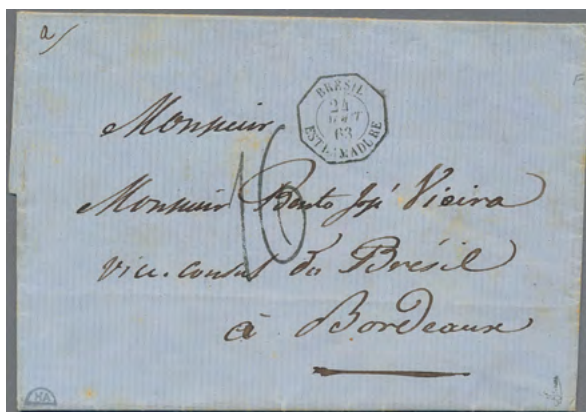 a/
BRÉSIL
24
AOUT
63
ESTRAMADURE
Monsieur
16
Monsieur Bento José Vieira
vice-consul du Brésil
à Bordeaux